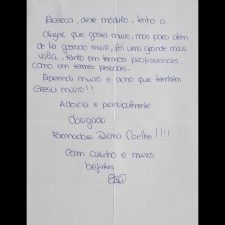 Acerca, deste módulo, tenho a
dizer que gostei muito, mas para além
de ter gostado muito, foi uma grande mais
valia, tanto em termos profissionais,
como em termos pessoais.
Aprendi muito e acho que também
cresci muito!!
Adorei e principalmente
Obrigada
Formadora Diana Coelho!!!!
Com carinho e muitos
beijinhos